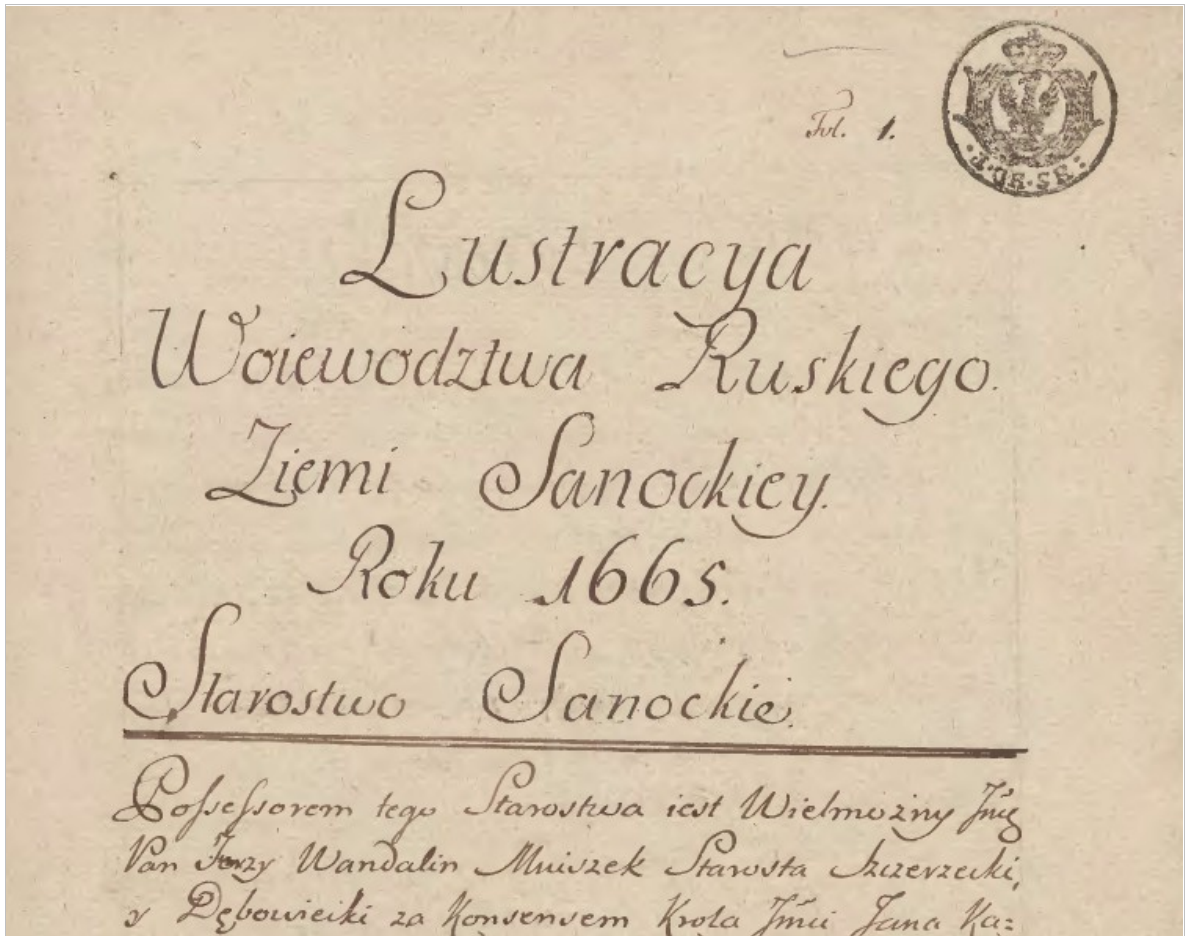 Fol. 1.
Lustracya
Woiewodztwa Ruskiego.
Ziemi Sanockiey.
Roku 1665.
Starostwo Sanockie.
Possessorem tego Starostwa iest Wielmożny Jmć
Pan Jerzy Wandalin Mniszek Starosta Szczerzecki,
y Dębowiecki za Konsensem Krola Jmći Jana Ka=